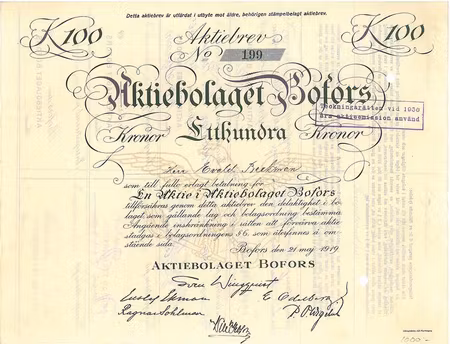 Detta aktiebrev är utfärdat i utbyte mot äldre, behörigen stämpelbelagt aktiebrev.
K 100 Aktiebrev K 100
No 199
Aktiebolaget Bofors
Teckningsrätten vid 1936
års aktieemission använd
Kronor Etthundra Kronor
Herr Ewald Beckman
som till fullo erlagt betalning för
En Aktie i Aktiebolaget Bofors
tillförsäkras genom detta aktiebrev den delaktighet i bo-
laget som gällande lag och bolagsordning bestämma
Angående inskränkning i rätten att förvärva aktie
stadgas i bolagsordningens § 6. som återfinnes å om-
stående sida.
Bofors den 21 maj 1919
AKTIEBOLAGET BOFORS
Sven Wingquist
Gustaf Ekman E Odelberg
Ragnar Sohlman
1000:-